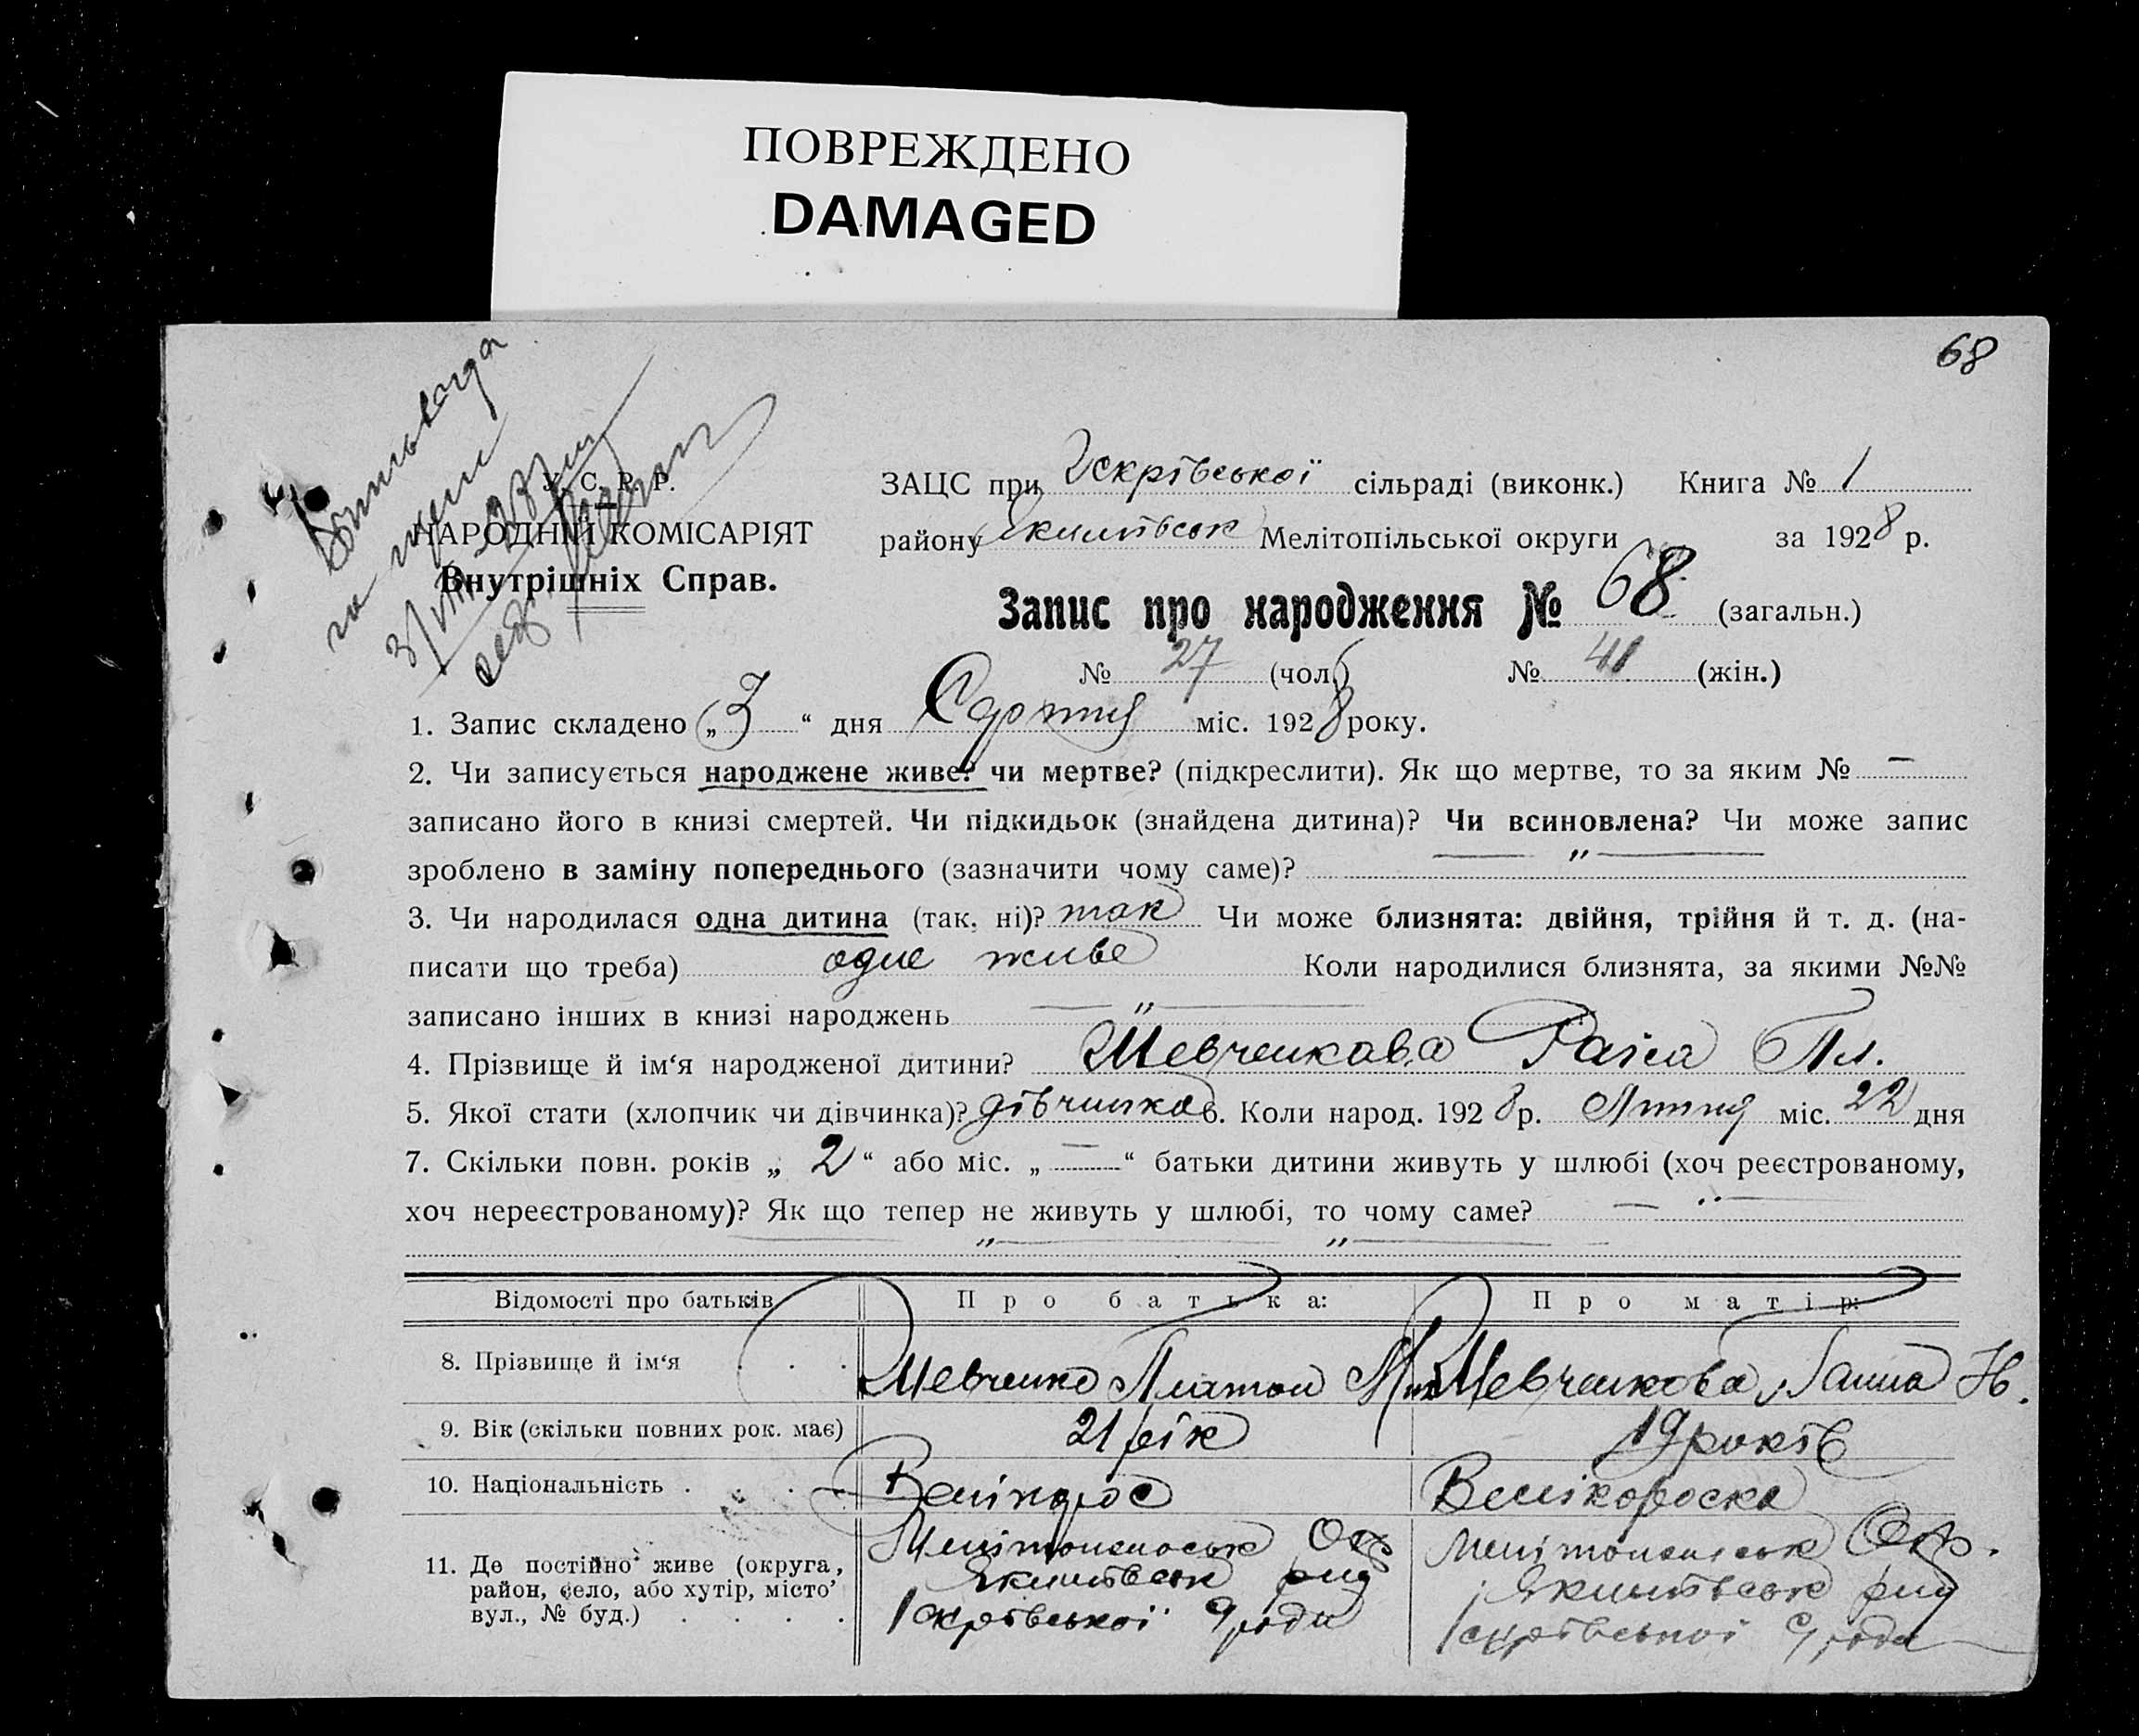 ПОВРЕЖДЕНО
DAMAGED
68
У. С. Р. Р.
НАРОДНІЙ КОМІСАРІЯТ
Внутрішніх Справ.
ЗАЦС при Іскрівської сільраді (виконк.) Книга № 1
району Якимівськ Мелітопільської округи за 1928 р.
Запис про народження № 68 (загальн.)
№ 27 (чол.) № 41 (жін.)
1. Запис складено „3“ дня Серпня міс. 1928 року.
2. Чи записується народжене живе? чи мертве? (підкреслити). Як що мертве, то за яким № —
записано його в книзі смертей. Чи підкидьок (знайдена дитина)? Чи всиновлена? Чи може запис
зроблено в заміну попереднього (зазначити чому саме)? — " —
3. Чи народилася одна дитина (так, ні)? так Чи може близнята: двійня, трійня й т. д. (на-
писати що треба) одне живе Коли народилися близнята, за якими №№
записано інших в книзі народжень — " —
4. Прізвище й ім‘я народженої дитини? Шевченкова Раїса Пл.
5. Якої стати (хлопчик чи дівчинка)? дівчинка 6. Коли народ. 1928 р. Липня міс. 22 дня
7. Скільки повн. років „ 2 “ або міс. „ — “ батьки дитини живуть у шлюбі (хоч реєстрованому,
хоч нереєстрованому)? Як що тепер не живуть у шлюбі, то чому саме? — " —
Відомості про батьків Про батька: Про матір:
8. Прізвище й ім‘я . . . Шевченко Платон Шевченкова Ганна Н.
9. Вік (скільки повних рок. має) 21 рік 19 років
10. Національність . . . Велікорос Велікороска
11. Де постійно живе (округа,
район, село, або хутір, місто
вул., № буд.) . . . .
Мелітопольськ Окр
Якимівськ рид
Іскрівської
Мелітопольськ Окр.
Якимівськ рид
Іскрівської